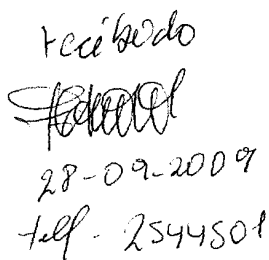 recibido
28-09-2009
telf - 2544501